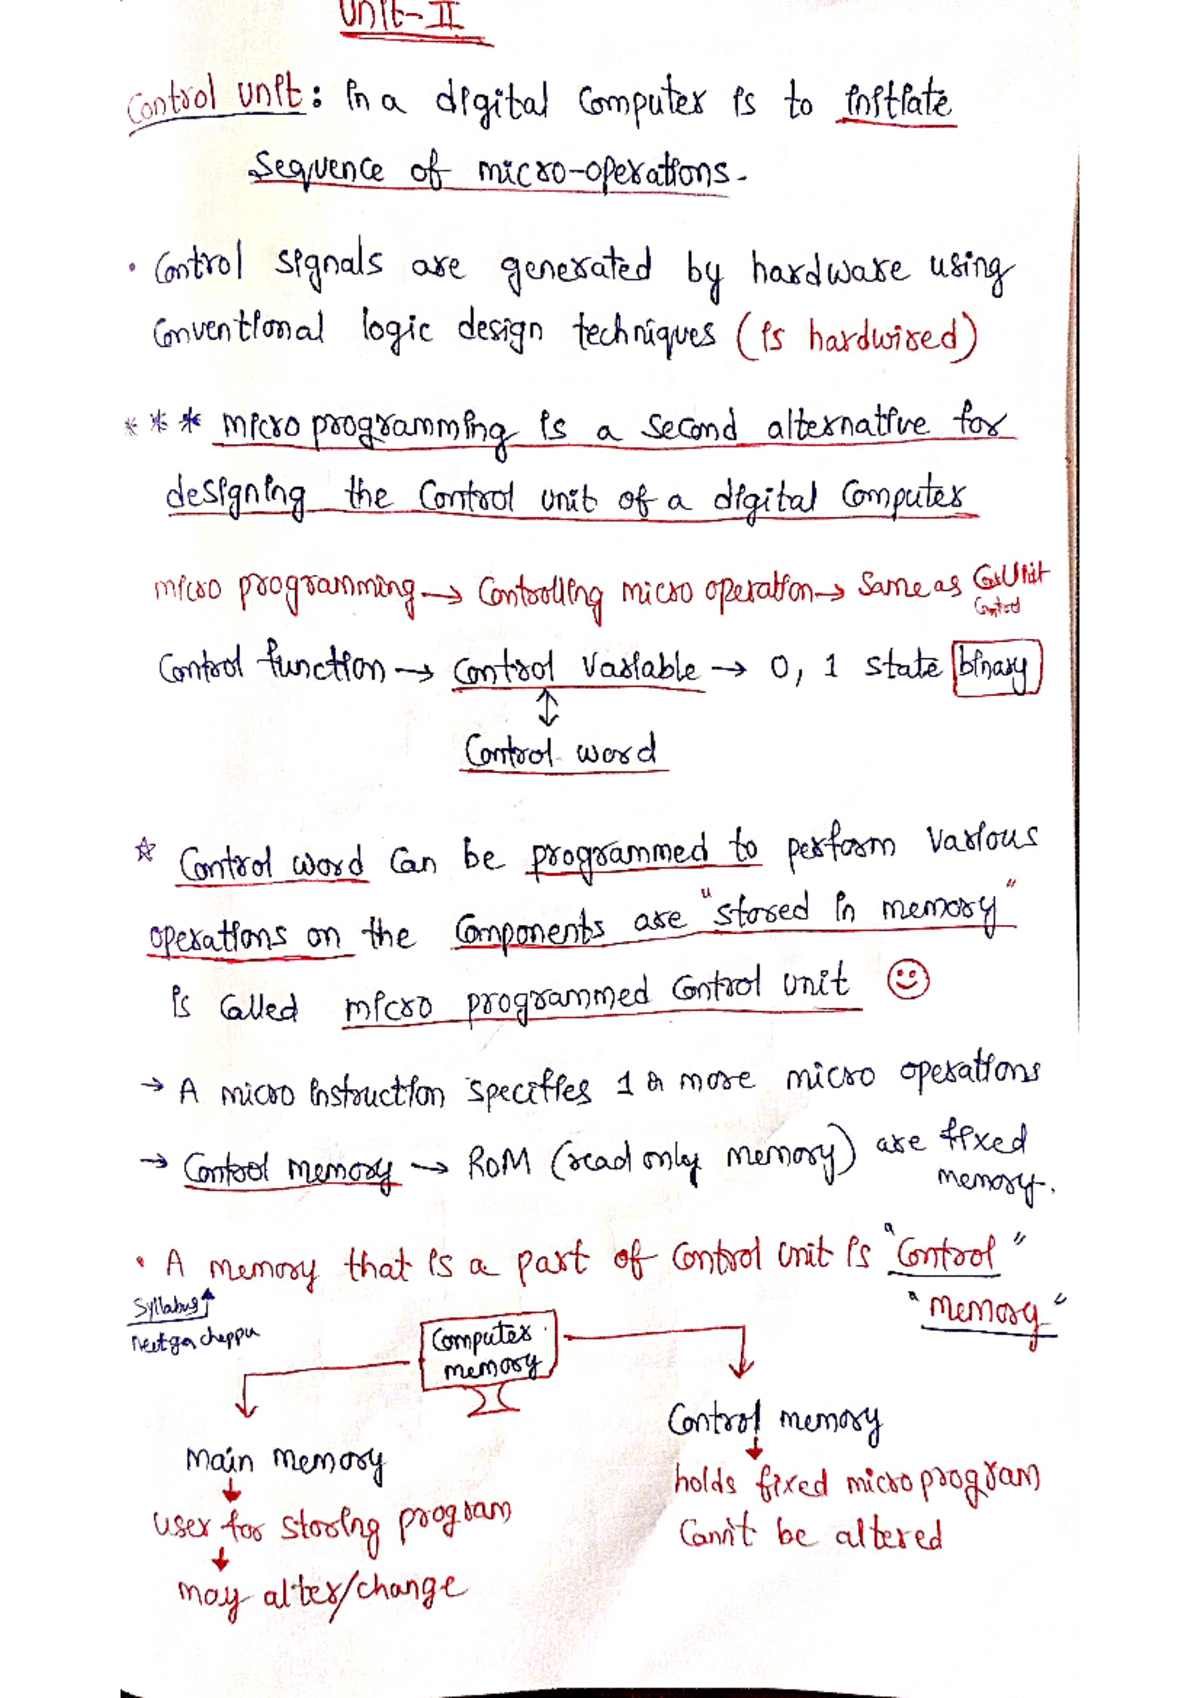 Unit-II
Control Unit: In a digital Computer is to initiate
Sequence of micro-operations.
• Control signals are generated by hardware using
Conventional logic design techniques (is hardwired)
*** micro programming is a second alternative for
designing the Control unit of a digital Computer
micro programming → Controlling micro operation → Same as Unit
Control
Control function → Control Variable → 0, 1 state binary
↕
Control word
☆ Control word Can be programmed to perform various
operations on the Components are "stored in memory"
is Called micro programmed Control unit ☺
→ A micro instruction specifies 1 or more micro operations
→ Control memory → ROM (read only memory) are fixed
memory.
• A memory that is a part of Control Unit is "Control"
"memory"
Syllabus
neetga cheppu
Computer
memory
Control memory
main memory
holds fixed micro program
user for storing program
Cann't be altered
may alter/change